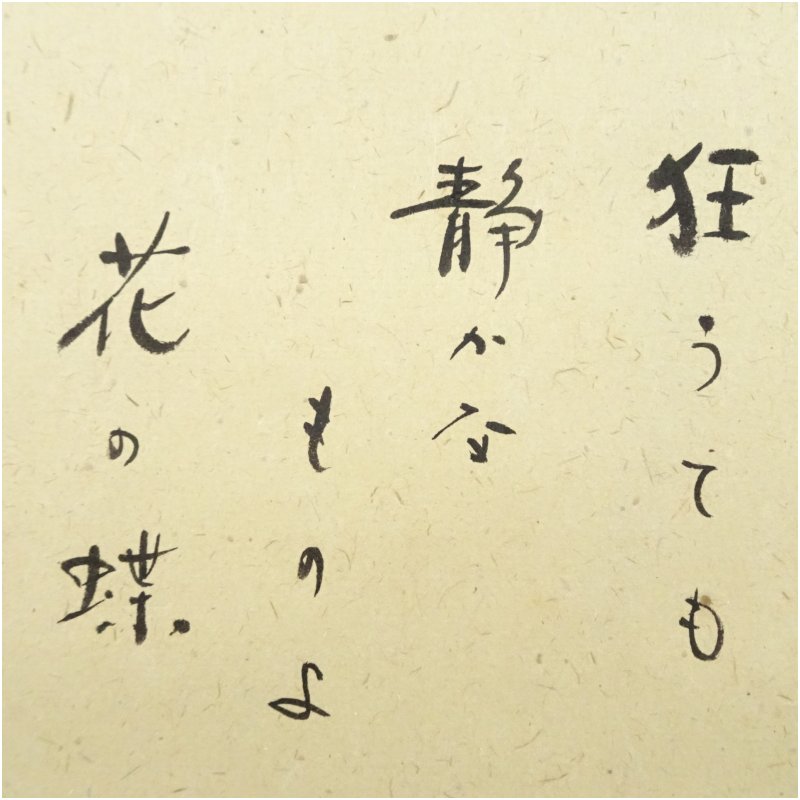 狂うても
静かな
ものよ
花の蝶